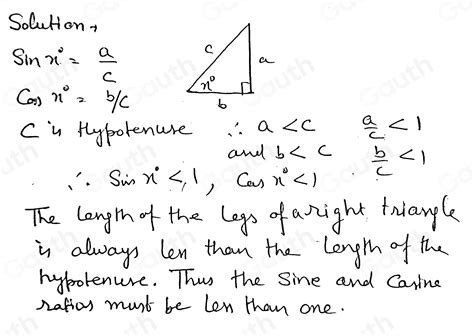 Solution →
Sin x° = a/c
Cos x° = b/c
c
a
x°
b
C is Hypotenuse ∴ a < c a/c < 1
and b < c b/c < 1
∴ Sin x° < 1, Cos x° < 1
The length of the legs of a right triangle
is always less than the length of the
hypotenuse. Thus the Sine and Cosine
ratios must be less than one.